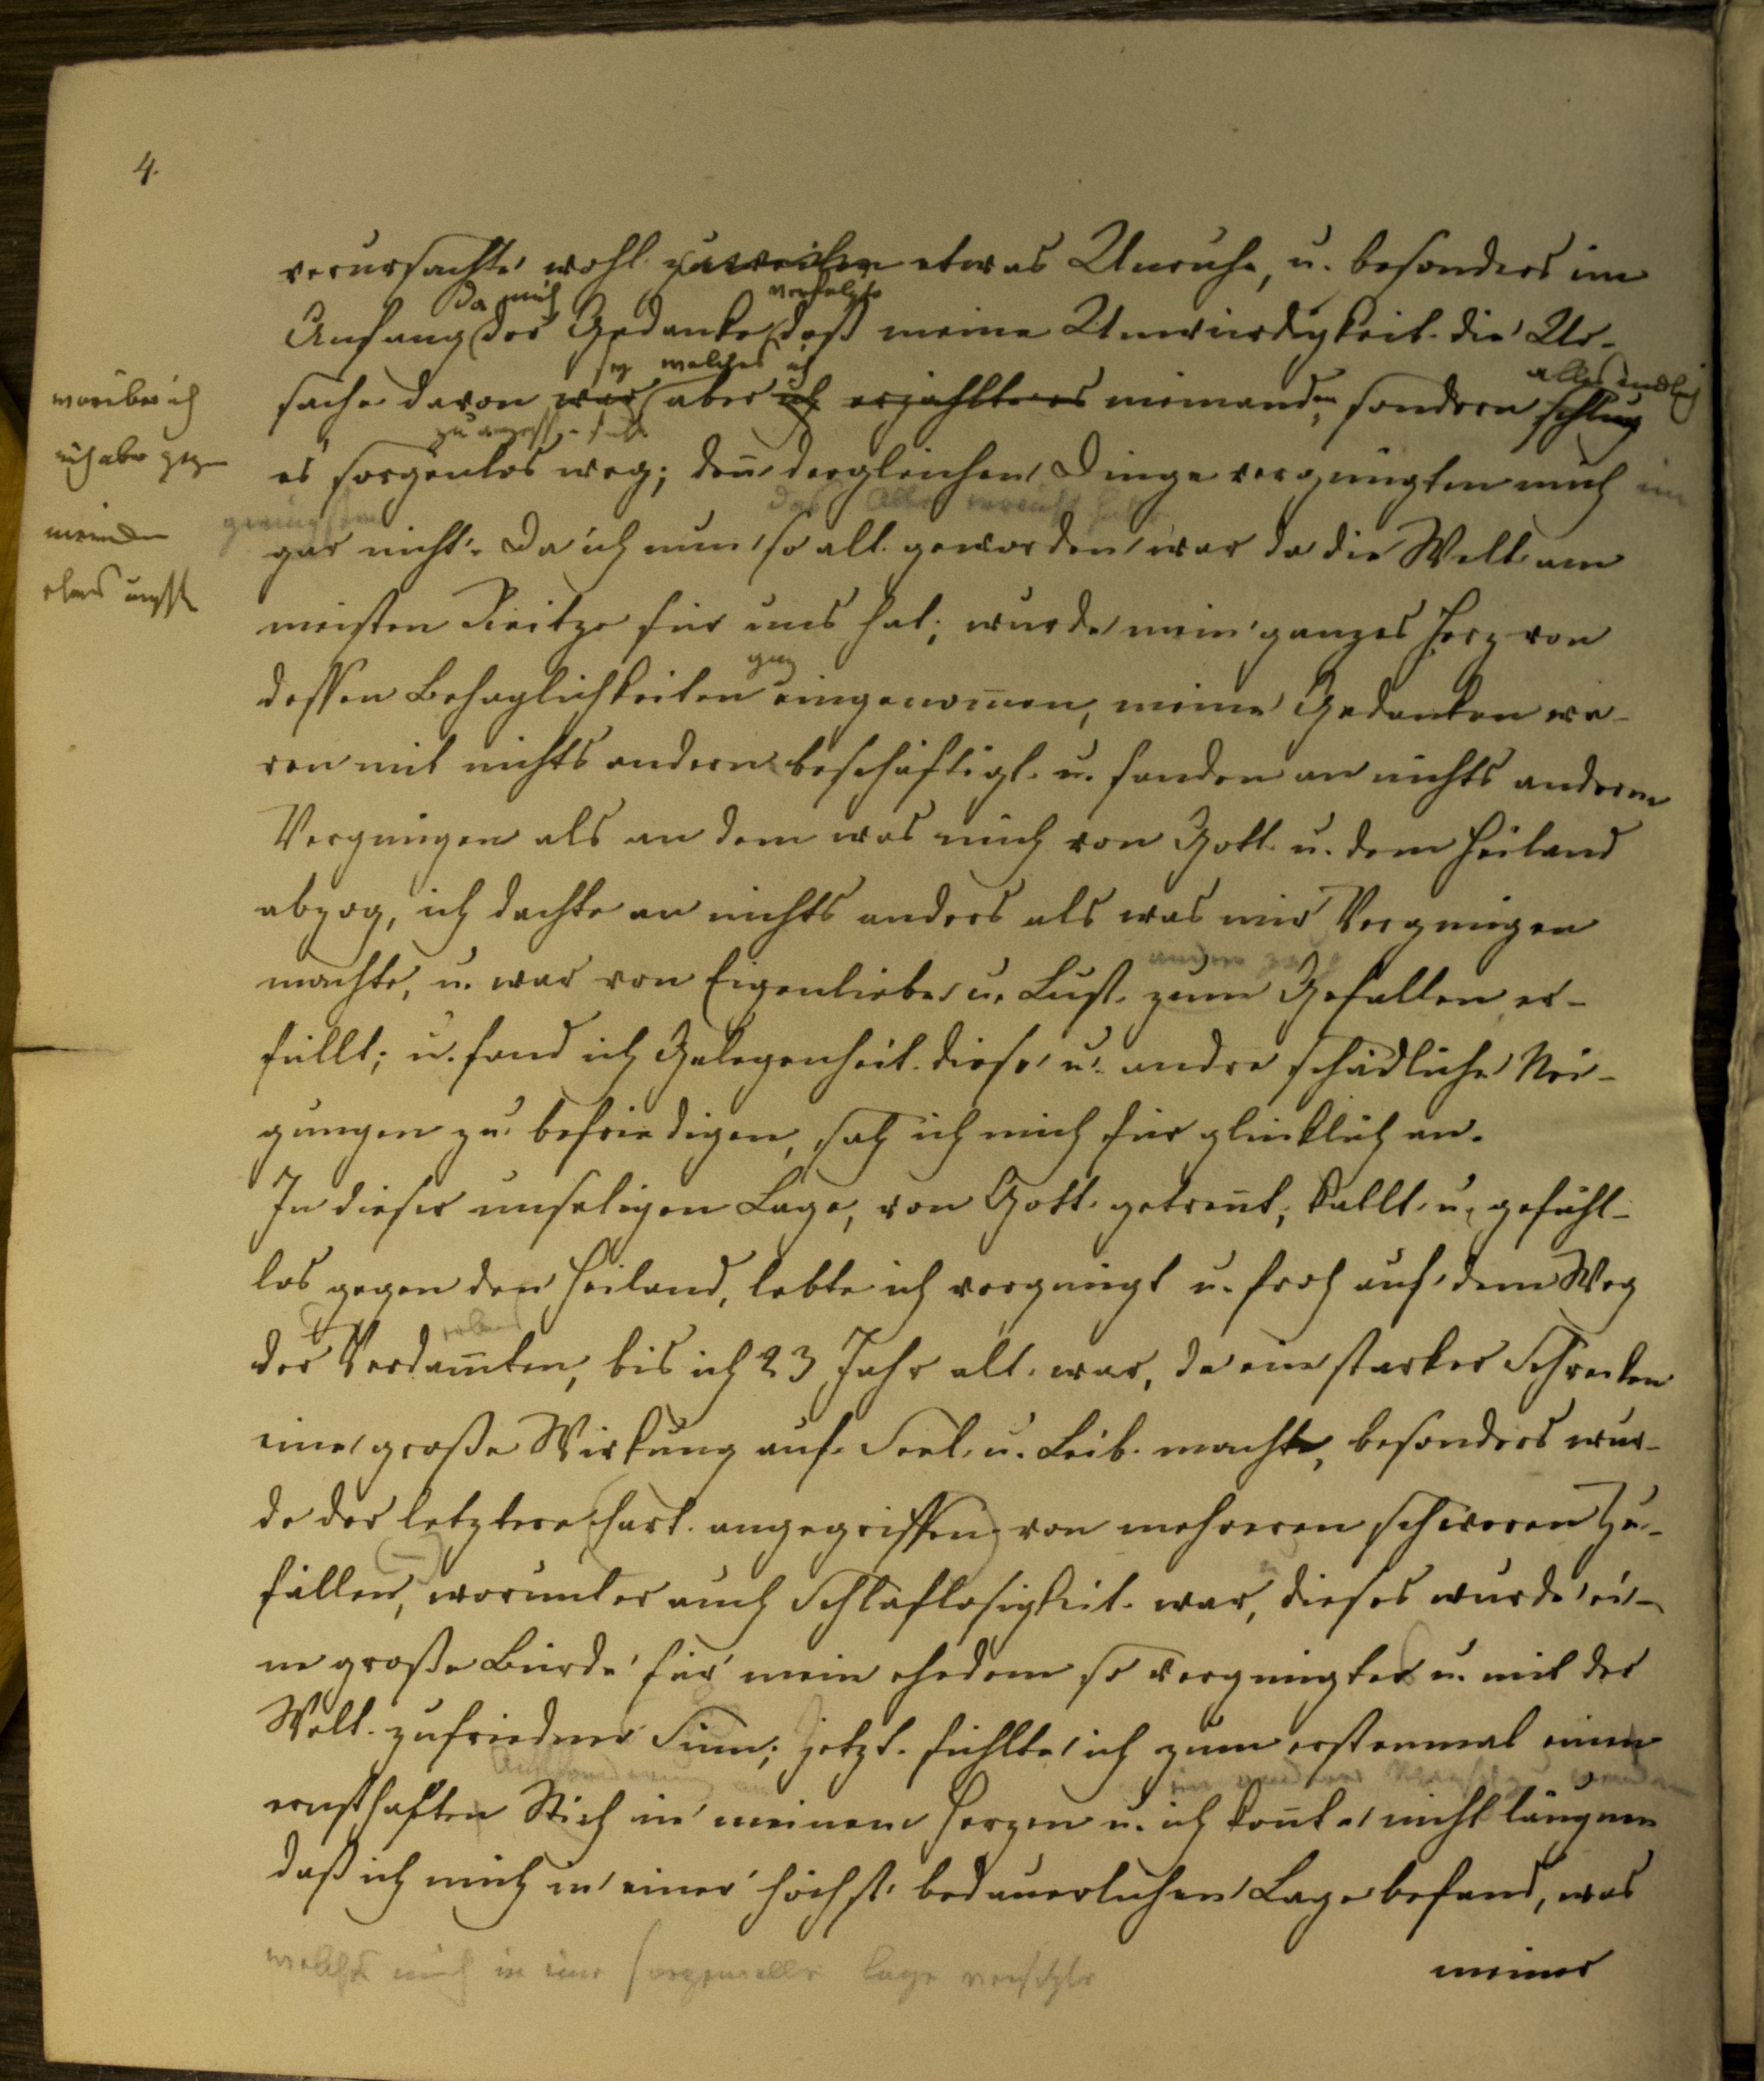 4.
verursachte wohl zuweilen etwas Unruhe, u. besonders im
da mich verfolgte
Anfang der Gedanke daß meine Unwürdigkeit die Ur-
sey welches ich alles endlich
sache davon war aber ich erzählte es niemanden, sondern schlug
worüber ich
mich aber gegen
niemanden
zu vergessen suchte
es sorgenlos weg; den̅ dergleichen Dinge vergnügten mich im
geringsten
gar nicht. Da ich nun so alt geworden war da die Welt am
meisten Reitze für uns hat; wurde mein ganzes Herz von
ganz
dessen Behaglichkeiten eingenom̅en, meine Gedanken wa-
ren mit nichts andern beschäftigt u. fanden an nichts anderm
Vergnügen als an dem was mich von Gott u. dem Heiland
abzog, ich dachte an nichts anders als was mir Vergnügen
machte, u. war von Eigenliebe u. Lust zum Gefallen er-
füllt; u. fand ich Gelegenheit diese u. andre schädliche Nei-
gungen zu befriedigen, sah ich mich für glücklich an.
In dieser unseligen Lage, von Gott getren̅t, kallt u. gefühl-
los gegen den Heiland, lebte ich vergnügt u. froh auf dem Weg
der Verdam̅ten, bis ich 23 Jahr alt war, da ein starker Schrecken
eine große Wirkung auf Seel u. Leib machte, besonders wur-
de der letztere hart angegriffen von mehreren schweren Zu-
fällen, worunter auch Schlaflosigkeit war, dieses wurde ei-
ne große Bürde für mein ehedem so vergnügter u. mit der
Welt zufriedner Sinn; jetzt fühlte ich zum erstenmal einen
ernsthaften Stich in meinem Herzen u. ich kon̅te nicht läugnen
daß ich mich in einer höchst bedauerlichen Lage befand, was
welches mich in eine sorgenvolle Lage versetzte
meiner